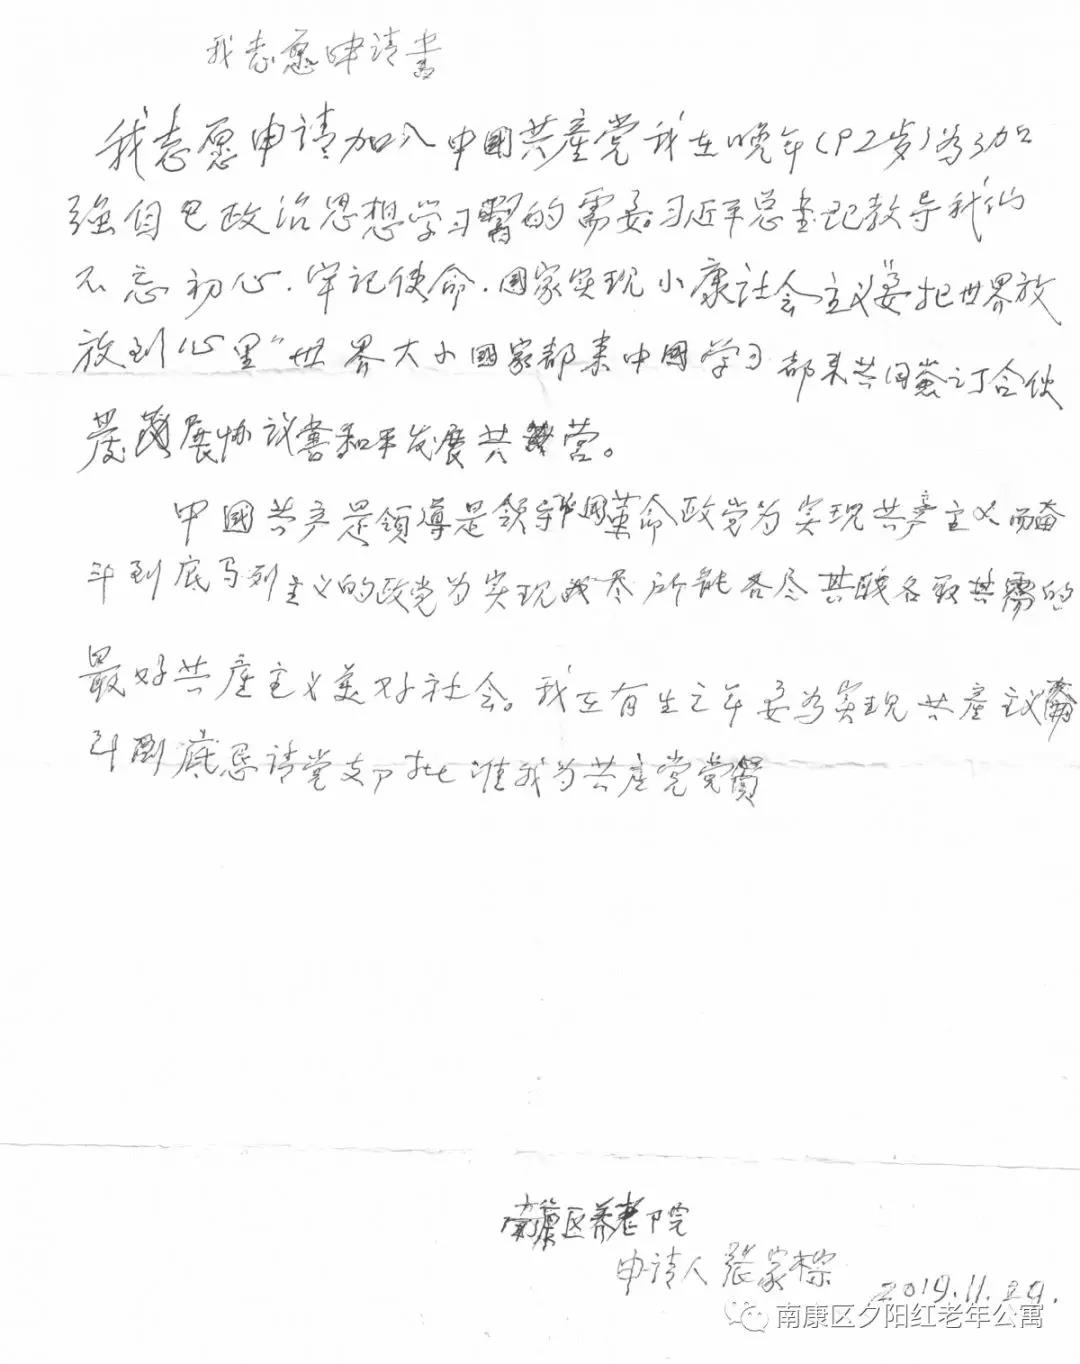 我志愿申请书
我志愿申请加入中國共産党我在晚年(92岁)为加
强自己政治思想学习的需要。习近平总書记教导我们
不忘初心.牢记使命.國家实现小康社会主义要“把世界放
放到心里”世界大小國家都来中國学习都来共同签订合伙
发展协议書和平发展共营。
中國共产是領導是领导中國革命政党为实现共产主义而奋
斗到底马列主义的政党为实现我尽所能各尽其能各取其需的
最好共産主义美好社会。我在有生之年要为实现共産主义奋
斗到底恳请党支部批准我为共産党党員
南康区养老院
申请人 張家樑
2019.11.29.
南康区夕阳红老年公寓